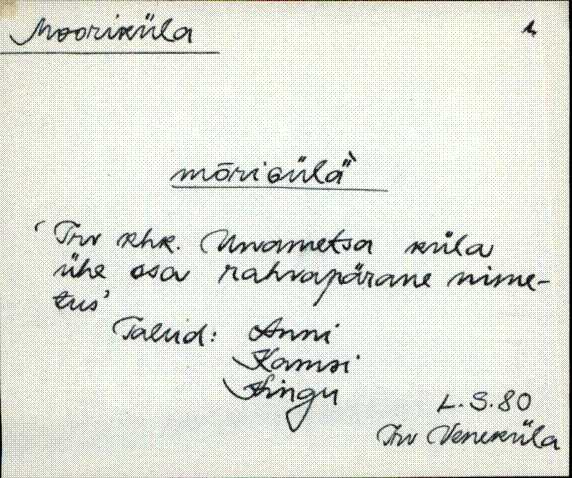 Mooriküla
mōriɢülä̀
‘Trv khk. Unametsa küla
ühe osa rahvapärane nime-
tus’
Talud: Anni
Kamsi
Hingu
L. S. 80
Trv Veneküla